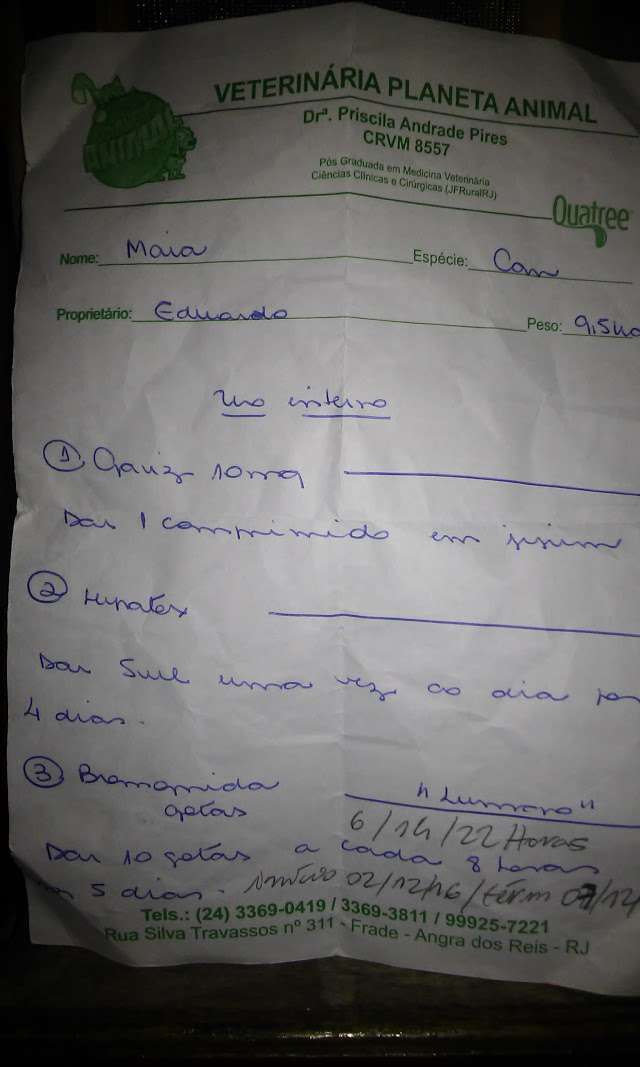 VETERINÁRIA PLANETA ANIMAL
Drª. Priscila Andrade Pires
CRVM 8557
Pós Graduada em Medicina Veterinária
Ciências Clínicas e Cirúrgicas (JFRuralRJ)
ANIMAL
Quatree
Nome: Maia Espécie: Can
Proprietário: Eduardo Peso: 9,5
Uso interno
1 10mg
Dar 1 comprimido em jejum
2
Dar 5ml uma vez ao dia por
4 dias.
3 Bromoprida
gotas "Humano"
6/14/22 Horas
Dar 10 gotas a cada 8 horas
5 dias. Início 02/12/16 / térm 07/12
Tels.: (24) 3369-0419 / 3369-3811 / 99925-7221
Rua Silva Travassos nº 311 - Frade - Angra dos Reis - RJ